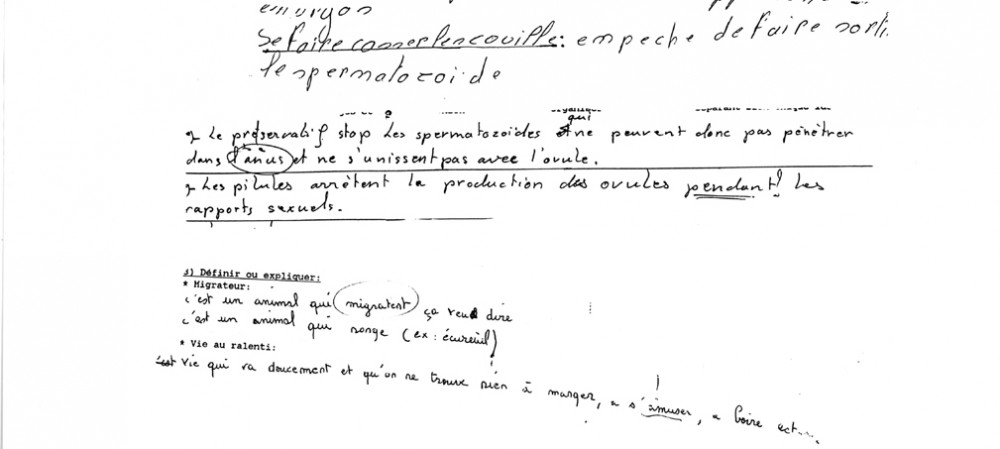 embryon
Se faire casser les couille: empeche de faire sorti
le spermatozoide
Le préservatif stop les spermatozoïdes qui ne peuvent donc pas pénétrer
dans l'anus et ne s'unissent pas avec l'ovule.
Les pilules arrêtent la production des ovules pendant les
rapports sexuels.
Définir ou expliquer:
* Migrateur:
c'est un animal qui migratent ça veud dire
c'est un animal qui ronge (ex: écureuil)
* Vie au ralenti:
Vie qui va doucement et qu'on ne trouve rien à manger, a s'amuser, a boire ect...